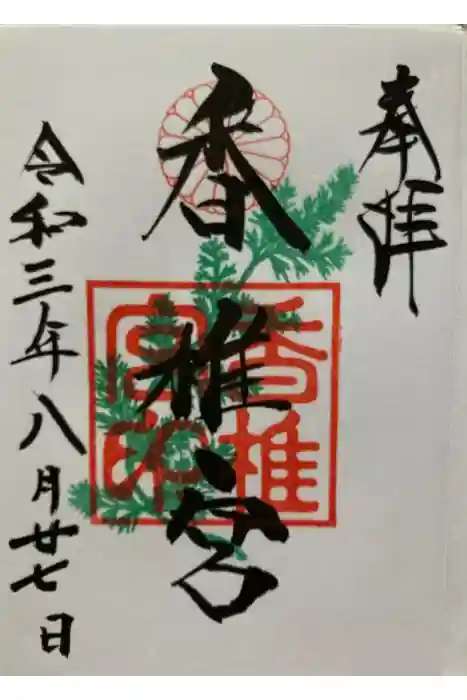 奉拝
香椎宮
香椎
宮印
令和三年八月廿七日